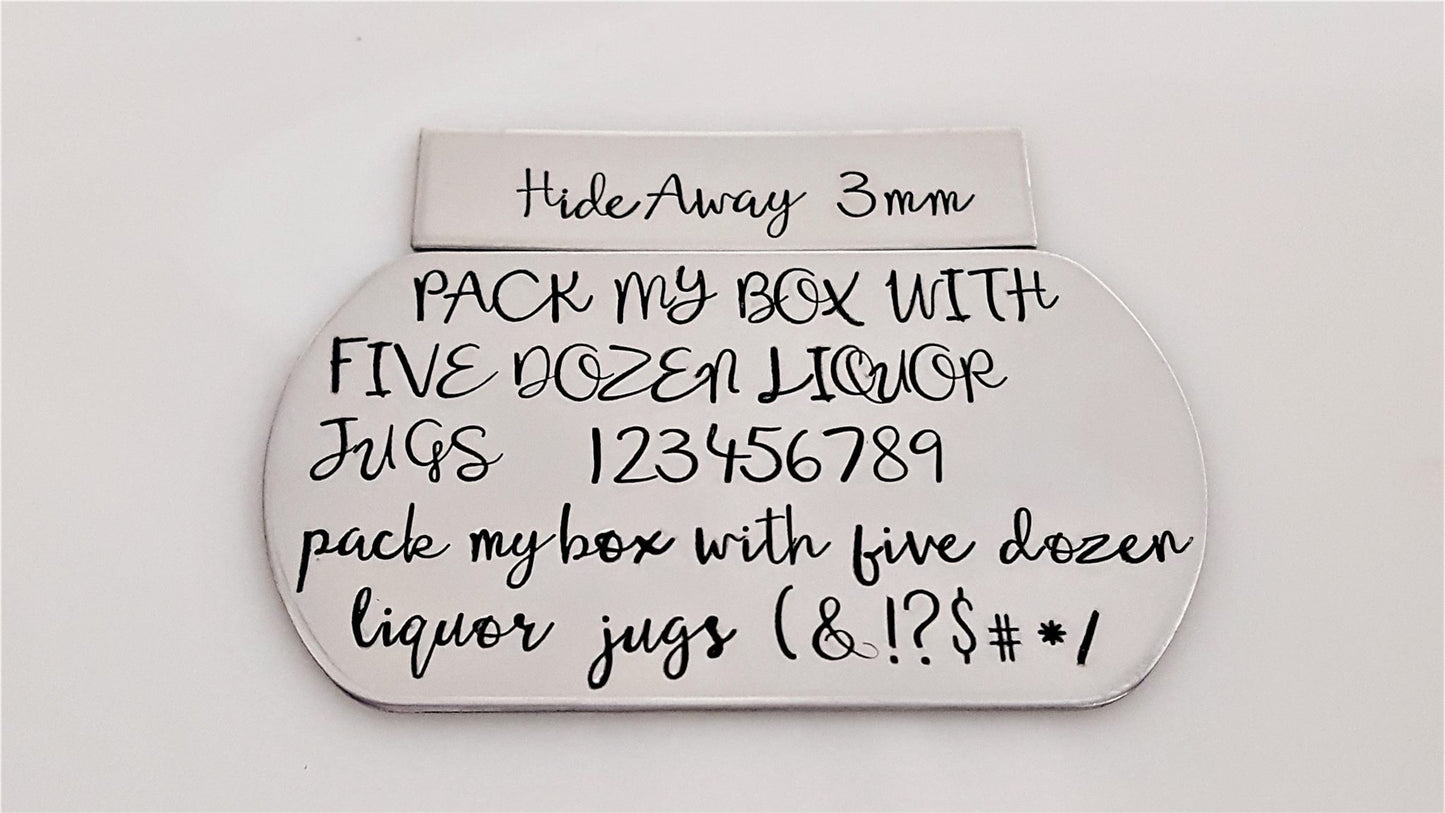 HideAway 3mm
PACK MY BOX WITH
FIVE DOZEN LIQUOR
JUGS 123456789
pack my box with five dozen
liquor jugs (&!?$#*/